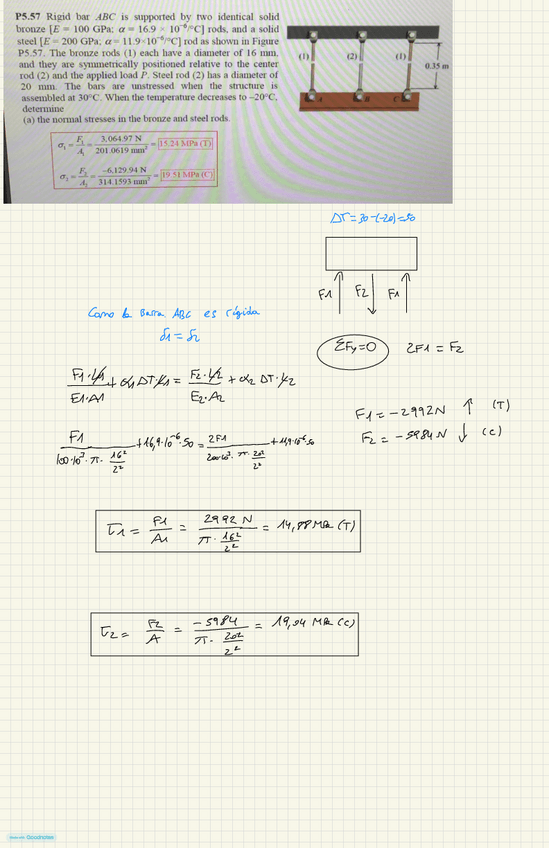 P5.57 Rigid bar ABC is supported by two identical solid
bronze [E = 100 GPa; α = 16.9 × 10⁻⁶/°C] rods, and a solid
steel [E = 200 GPa; α = 11.9×10⁻⁶/°C] rod as shown in Figure
P5.57. The bronze rods (1) each have a diameter of 16 mm,
and they are symmetrically positioned relative to the center
rod (2) and the applied load P. Steel rod (2) has a diameter of
20 mm. The bars are unstressed when the structure is
assembled at 30°C. When the temperature decreases to –20°C,
determine
(a) the normal stresses in the bronze and steel rods.
σ₁ = F₁/A₁ = 3,064.97 N / 201.0619 mm² = 15.24 MPa (T)
σ₂ = F₂/A₂ = −6,129.94 N / 314.1593 mm² = 19.51 MPa (C)
(1) (2) (1) 0.35 m
A B C
ΔT = 30-(-20) = 50
F1 F2 F1
Como la Barra ABC es rígida
δ1 = δ2
ΣFy=0 2F1 = F2
F1·L1/E1·A1 + α1 ΔT·L1 = F2·L2/E2·A2 + α2 ΔT·L2
F1 = -2992N ↑ (T)
F2 = -5984 N ↓ (C)
F1/100·10³·π·16²/2² + 16,9·10⁻⁶·50 = 2F1/200·10³·π·20²/2² + 11,9·10⁻⁶·50
σ1 = F1/A1 = 2992 N/π·16²/2² = 14,88 MPa (T)
σ2 = F2/A = -5984/π·20²/2² = 19,04 MPa (C)
Made with Goodnotes